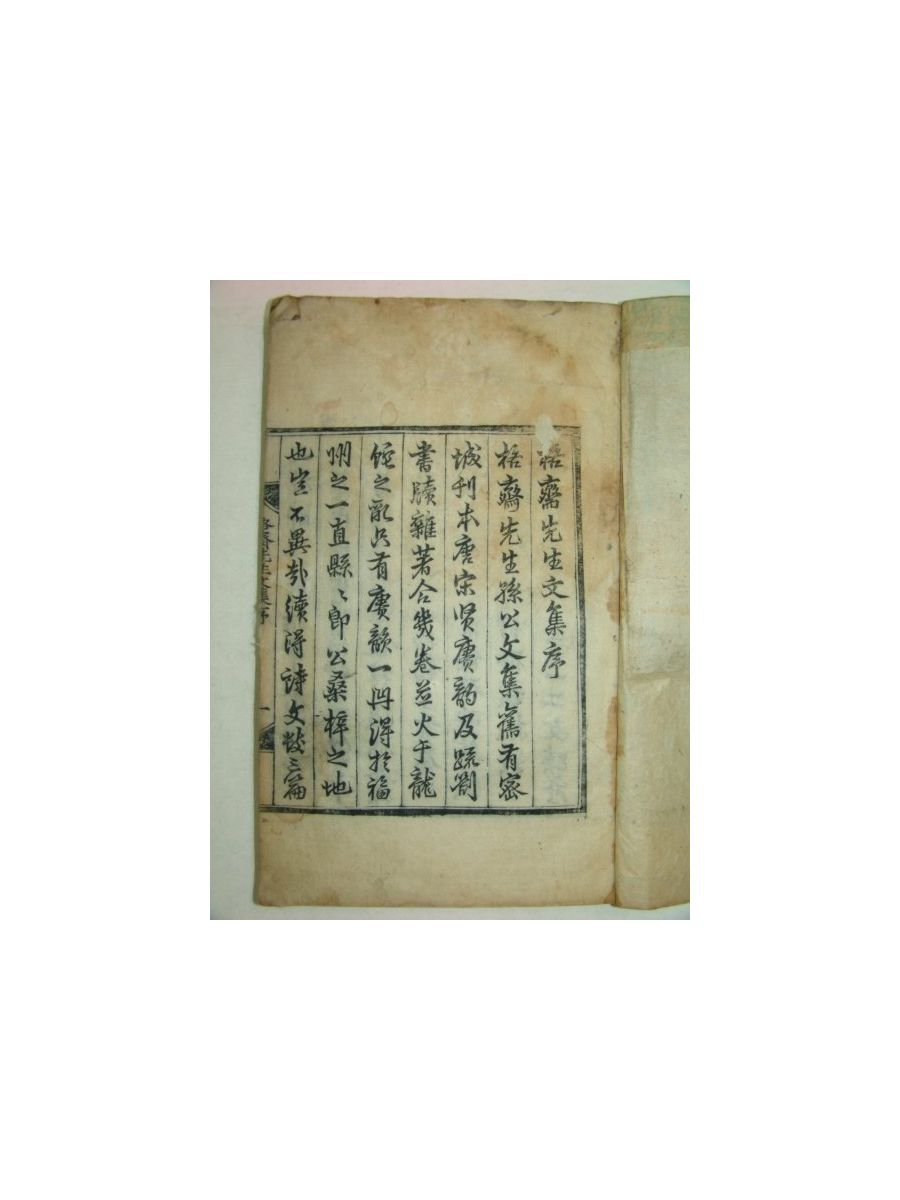 格齋先生文集序
格齋先生孫公文集舊有密
城刊本唐宋贤賡韵及疏劄
書牘雜著合幾卷並火于龍
蛇之亂只有賡韻一冊得於福
州之一直縣〻卽公桑梓之地
也豈不異哉續得詩文數三篇
格齋先生文集序
一